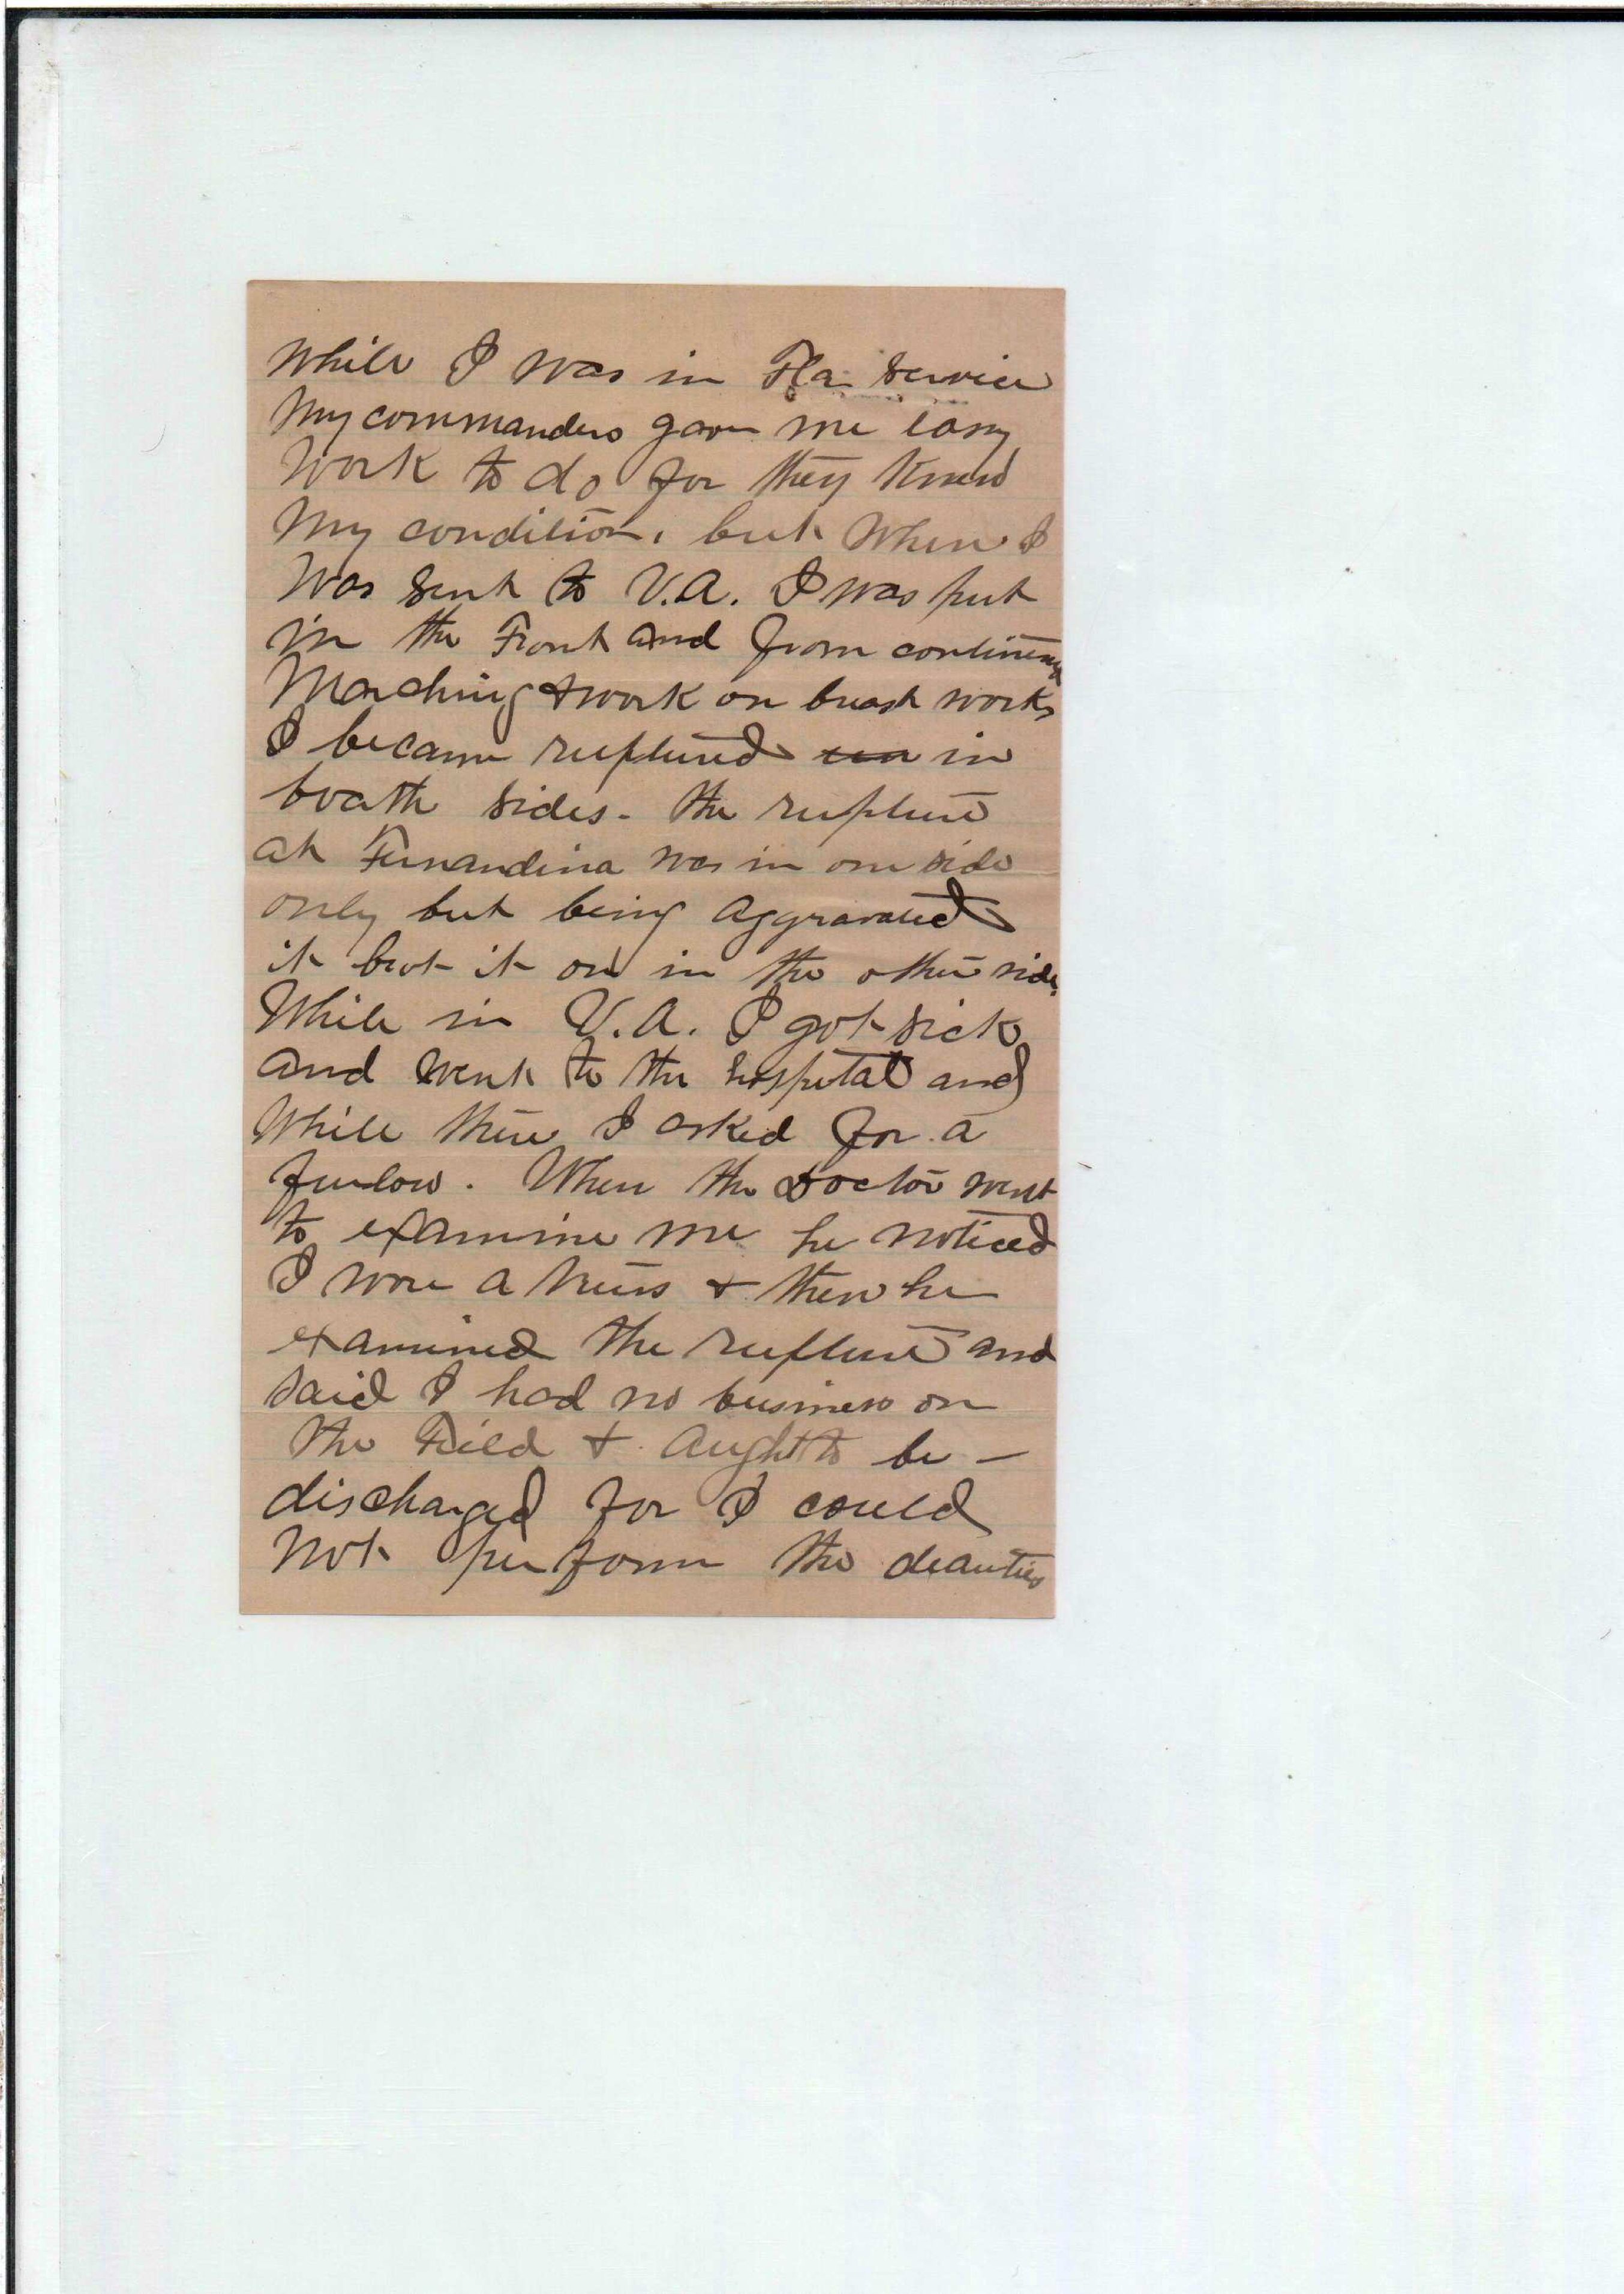 While I was in Fla. Service
My commanders gave me easy
Work to do for they knew
My condition, but When I
Was sent to V.A. I was put
in the Front and from contineng
Marching & work on breast works
I became ruptured in
boath sides. The rupture
at Fernandina was in one side
only but being aggravated
it brot it on in the other side.
While in V.A. I got sick
and went to the hospital and
While there I asked for a
furlow. When the Doctor went
to examine me he noticed
I wore a truss & then he
examined the rupture and
said I had no business on
the Field & aught to be -
discharged for I could
Not perform the deauties